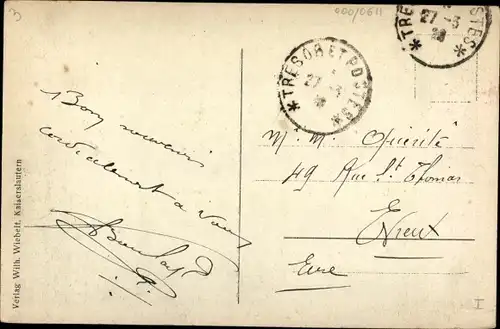 3
000/0611
TRESOR ET POSTES
27 - 3
TRESOR ET POSTES
27 - 3
Bon souvenir
cordialement à vous
M. M.
49 Rue St Thomas
Evreux
Eure
Verlag Wilh. Wiebelt, Kaiserslautern
I